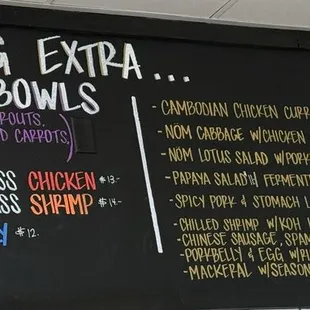 G EXTRA...
BOWLS
ROUTS,
D CARROTS,)
SS CHICKEN $13.-
SS SHRIMP $14.-
$12.
- CAMBODIAN CHICKEN CURR
- NOM CABBAGE W/CHICKEN
- NOM LOTUS SALAD W/PORK
- PAPAYA SALAD W/ FERMENT
- SPICY PORK & STOMACH L
- CHILLED SHRIMP W/KOH K
- CHINESE SAUSAGE, SPAM
- PORKBELLY & EGG W/RI
- MACKERAL W/SEASON